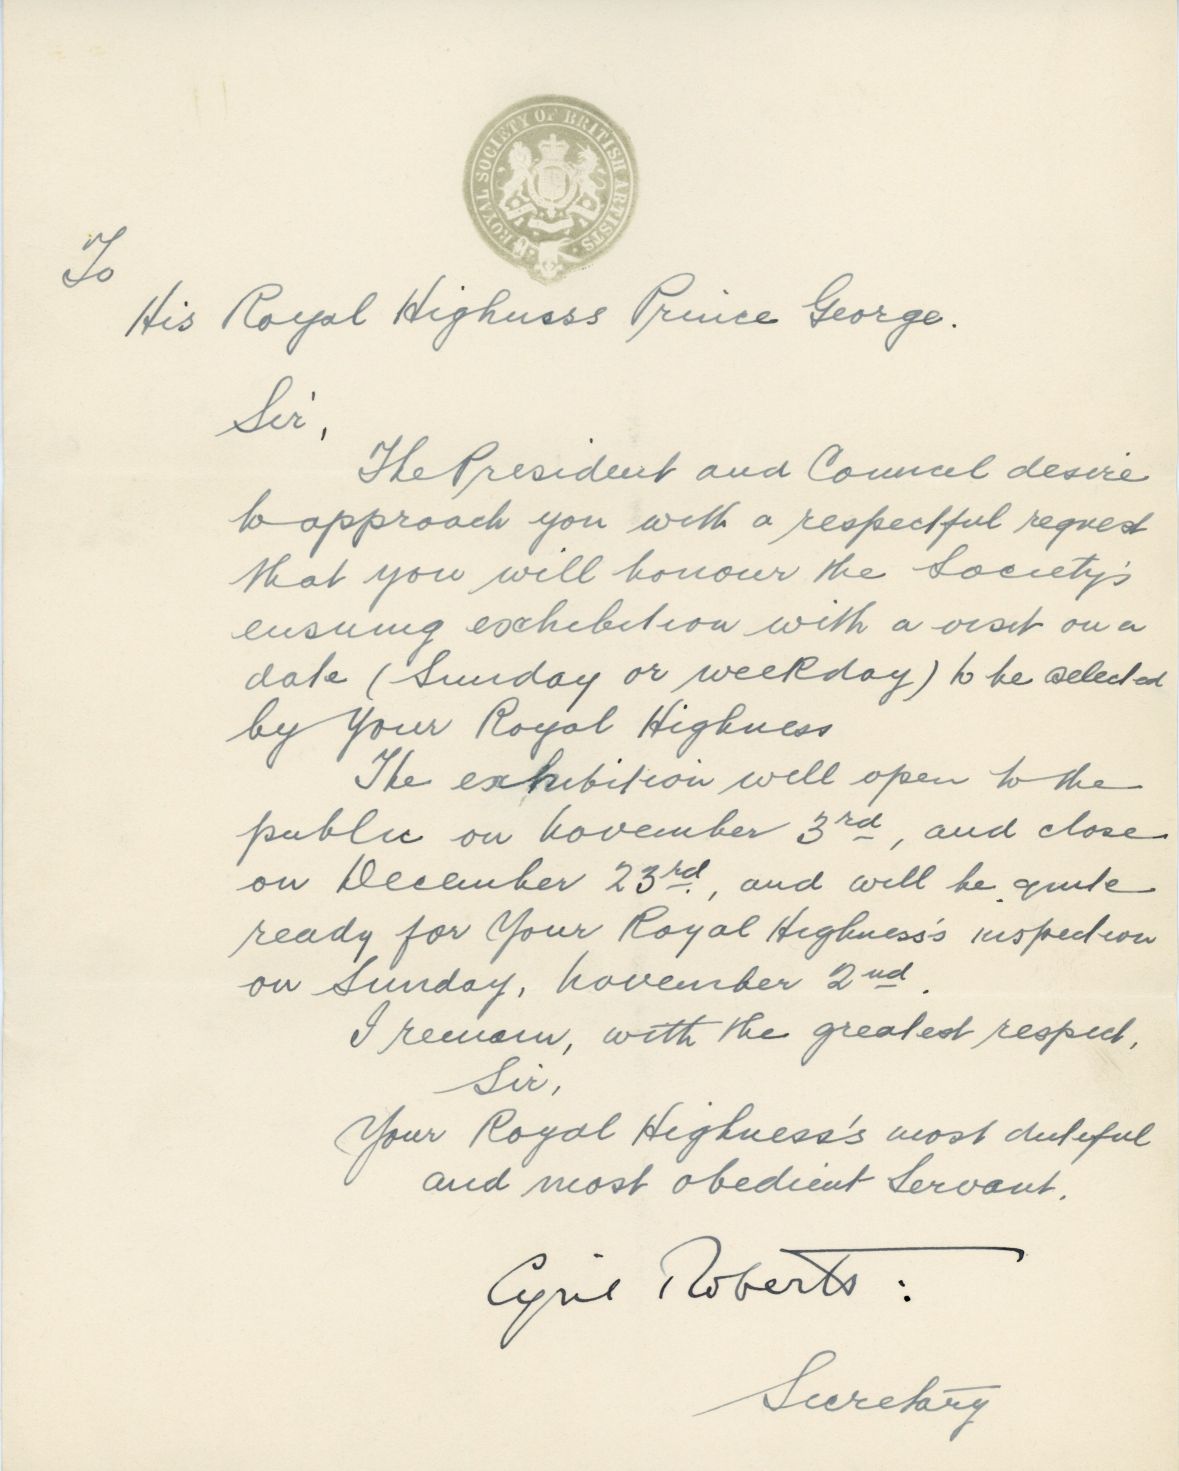 ROYAL SOCIETY OF BRITISH ARTISTS.
To
His Royal Highness Prince George.
Sir,
The President and Council desire
to approach you with a respectful request
that you will honour the Society's
ensuing exhibition with a visit on a
date (Sunday or weekday) to be selected
by Your Royal Highness
The exhibition will open to the
public on November 3rd, and close
on December 23rd, and will be quite
ready for Your Royal Highness's inspection
on Sunday, November 2nd.
I remain, with the greatest respect,
Sir,
Your Royal Highness's most dutiful
and most obedient Servant.
Cyril Roberts:
Secretary